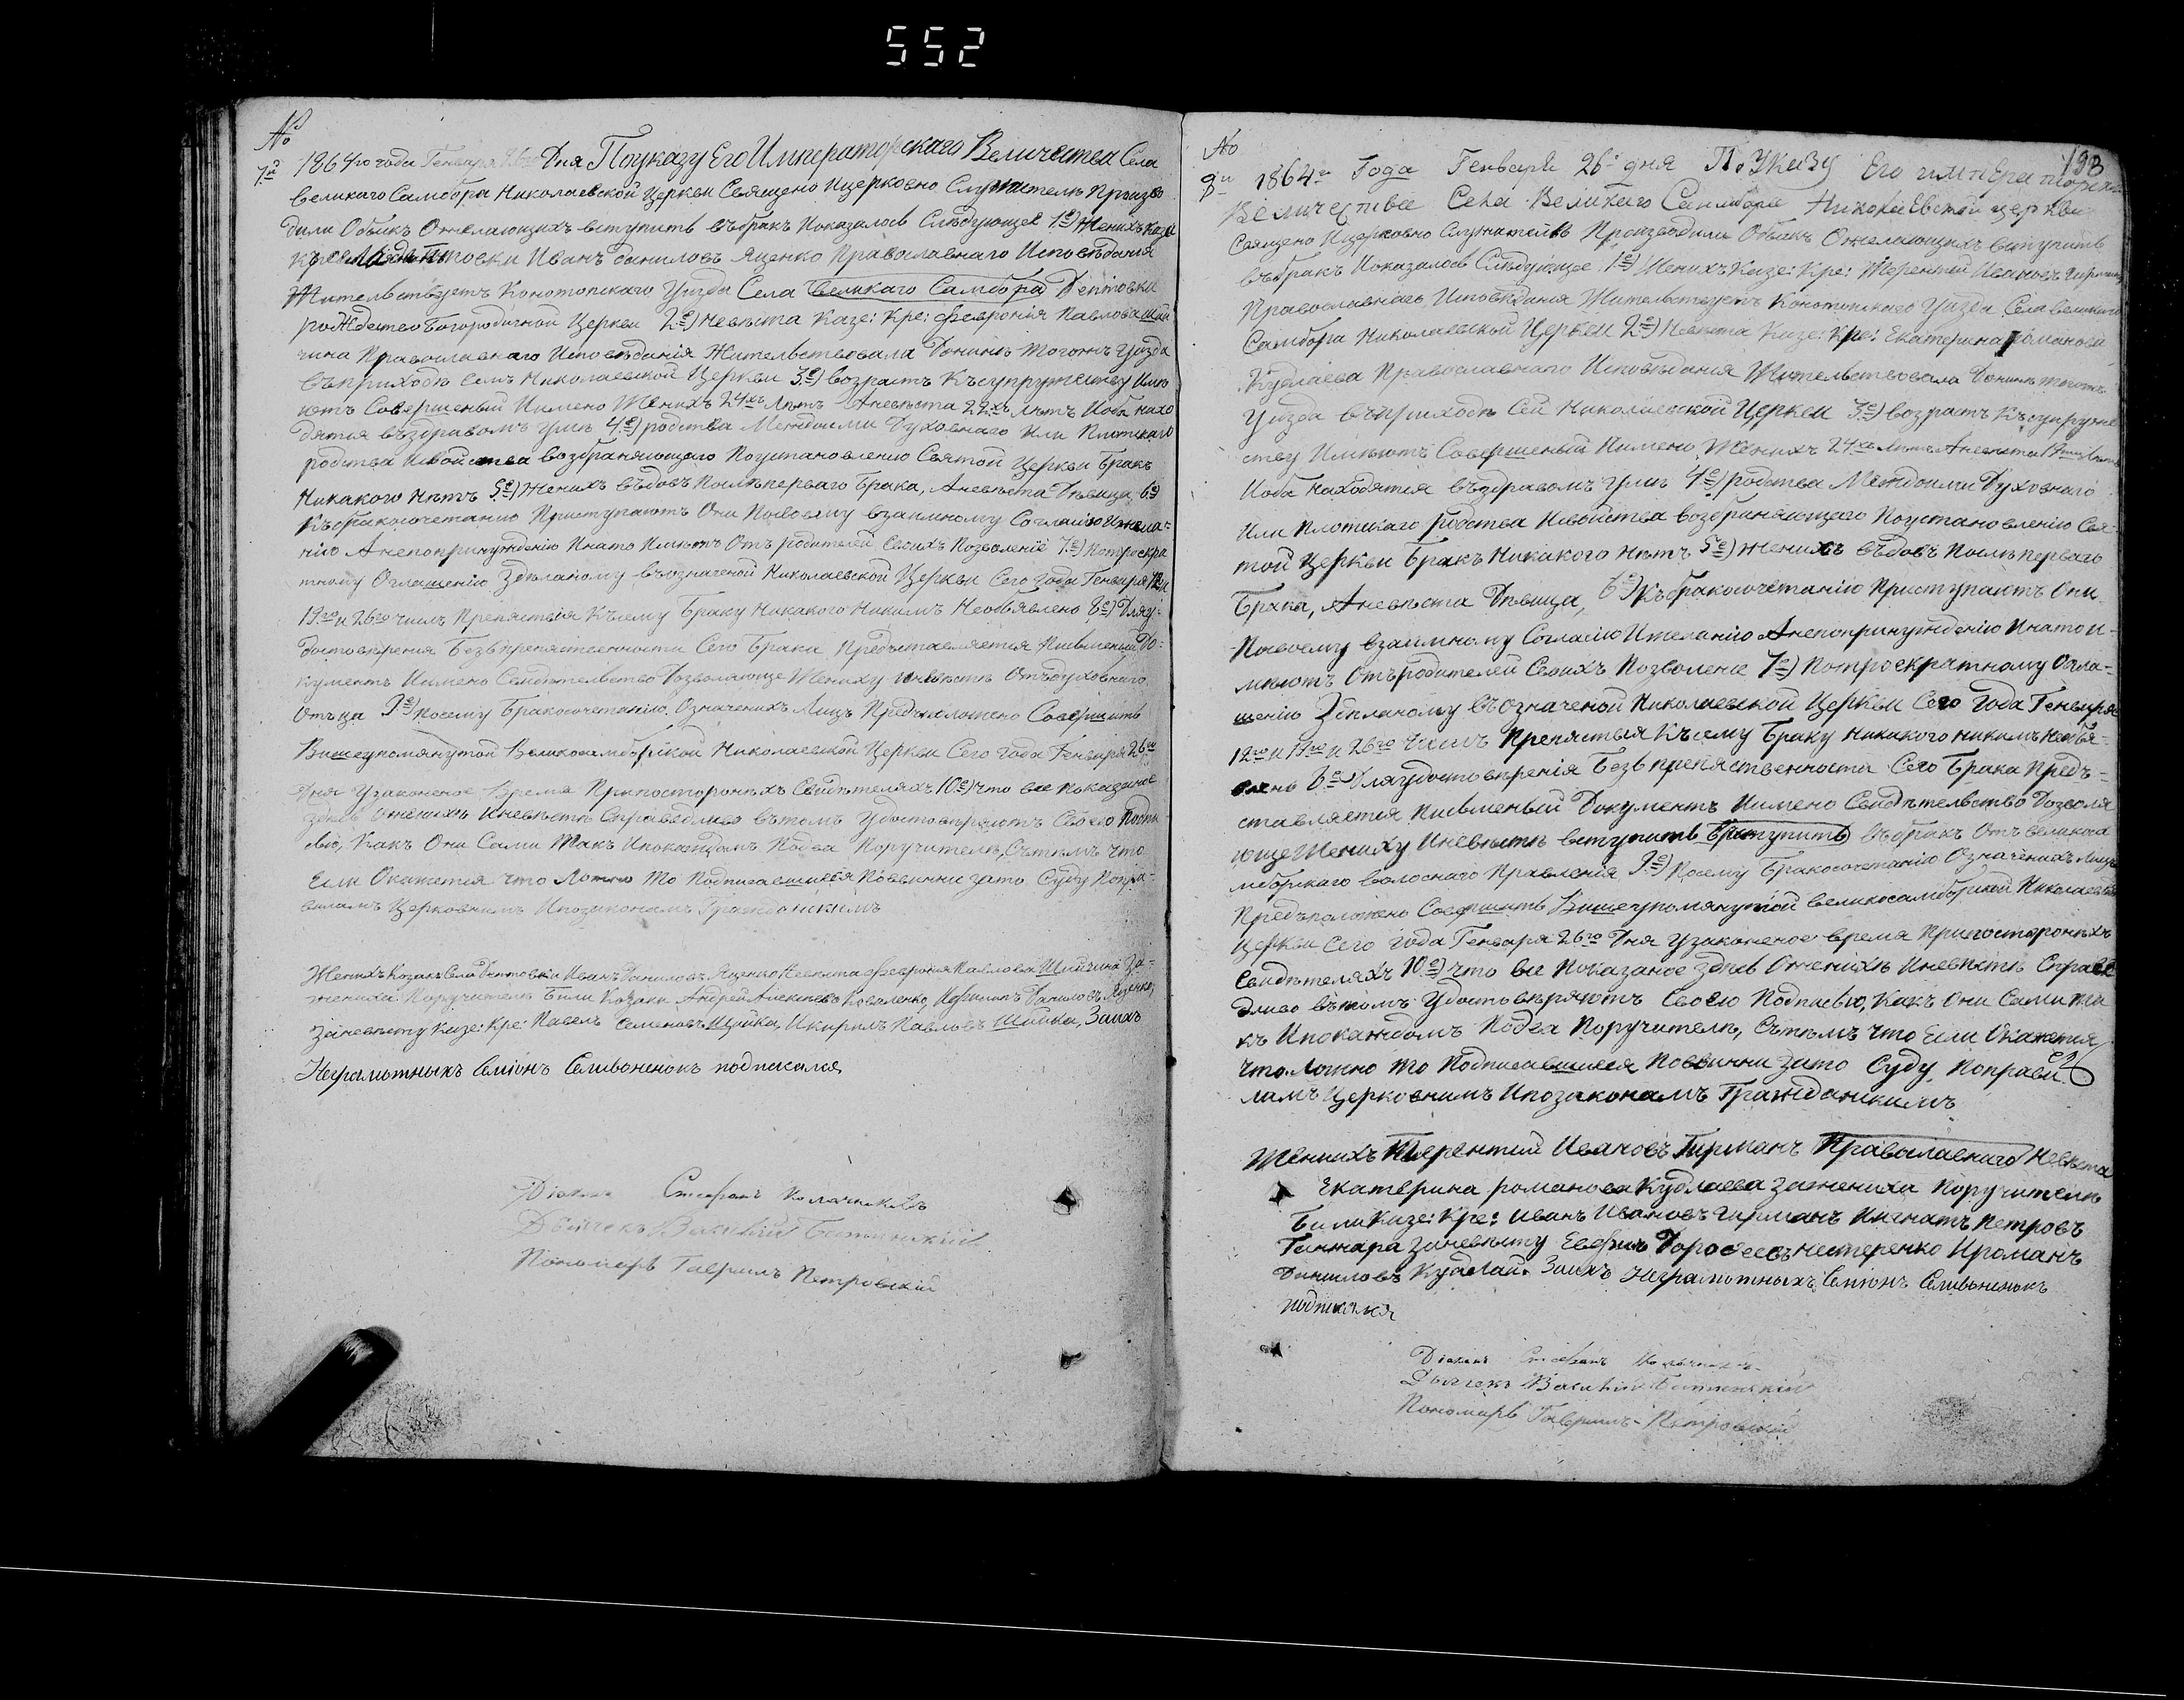 552
№
7й 1864го года Генваря 26го Дня По указу Его Императорскаго Величества Села
великаго Самбора Николаевской Церкви Священо Ицерковно Служители Произво
дили Обыск Ожелающихъ вступить въбракъ Ипоказалось Слѣдующее 1е) Женихъ казе
кре Иванъ даниловъ Яценко Православнаго Исповѣдания
Жительствуетъ Конотопскаго Уизда Села великаго Самбора Дептовки
рождество Богородичной Церкви 2е) Невѣста Казе: Кре: феврония Павлова Ший
чина Православнаго Исповѣдания Жительствовала Донинѣ тогожъ Уизда
въприходѣ сей Николаевской Церкви 3е) возрастъ Късупружеству Имѣ
ютъ Совершеный Иимено Женихъ 24хъ Лѣтъ Аневѣста 22хъ лѣтъ Иоба нахо
дятся въздравомъ умѣ 4е) родства Междоими Духовнаго Или Плотскаго
родства Исвойства возбраняющаго Поустановлению Святой Церкви Бракъ
Никакого Нѣтъ 5е) Женихъ въдовъ Послѣперваго Брака, Аневѣста Дѣвица, 6е)
Къбракосочетанию Приступаютъ Они Посвоему взаимному Согласию Ижела-
нию Анепопринуждению Инато Имѣютъ Отъ родителей Своихъ Позволение 7е) Потроекра
тному Оглашению Здѣланому въозначеной Николаевской Церкви Сего года Генваря 12и
19го и 26го числъ Препятствия Къcему Браку Никакого Никимъ Необявлено 8е) Дляу-
достовѣрения Безъпрепятственности Сего Брака Предъставляется Писменый До-
кументъ Иимено Свидѣтельство Дозволяюще Жениху Иневѣстѣ Отъдуховнаго
Отъца 9е) посему Бракосочетанию Означенихъ Лицъ Предъположено Совершить
Вишеупомянутой Великосамборской Николаевской Церкви Сего года Генваря 26го
Дня Узаконеное Время Припосторонихъ Свидѣтеляхъ 10е) что все показаное
здѣсь Ожениху Иневѣстѣ Справедливо вътомъ Удостовѣряютъ Своею Подпи
сью, Какъ Они Сами Такъ Ипокаждомъ Подва Поручителѣ, Сътѣмъ что
Если Окажется что Ложно то Подписавшиеся Повинни зато Суду Попра-
виламъ Церковнимъ Ипозаконамъ Гражданскимъ
Женихъ Козакъ Села Дептовки Иванъ Даниловъ Яценко Невѣста феврония Павлова Шийчина За-
жениха Поручителѣ Били Козаки Андрей Алексѣевъ Коваленко, Ифилипъ Даниловъ Яценко,
Заневѣсту Казе: Кре: Павелъ Семеновъ Шийка, Икирилъ Павловъ Шийка, Заихъ
Неграмотныхъ Семіонъ Селивоненокъ подписался
Діаконъ Стефанъ
Дьячекъ Василий
Пономарь Гаврилъ Петровский
№ 198
8й 1864го Года Генваря 26го дня По Указу Его императорска
Величества Села Великаго Самбора Николаевской церкви
Священо Ицерковно Служители Производили Обыскъ Ожелающихъ вступить
въбракъ Ипоказалось Слѣдующее 1е) Женихъ Казе: Кре: Терентий Ивановъ Гирманъ
Православнаго Исповѣдания Жительствуетъ Конотопскаго Уизда Села великаго
Самбора Николаевской Церкви 2е) Невѣста Казе: Кре: Екатерина романова
Кудлаева Православнаго Исповѣдания Жительствовала Донинѣ тогожъ
Уизда въприходѣ Сей Николаевской Церкви 3е) возрастъ Късупруже
ству Имѣютъ Совершеный Иимено Женихъ 24хъ Лѣтъ Аневѣста
Иоба Находятся въздравомъ Умѣ 4е) родства Междоими Духовнаго
Или Плотскаго родства Исвойства возбраняющаго Поустановлению Свя-
той Церкви Бракъ Никакого Нѣтъ 5е) Женихъ въдовъ Послѣперваго
Брака, Аневѣста Дѣвица, 6е) Къбракосочетанию Приступаютъ Они
Посвоему взаимному Согласию Ижеланию Анепопринуждению Инато и-
мѣютъ Отъродителей Своихъ Позволение 7е) Потроекратному Огла-
шению Здѣланому Въозначеной Николаевской Церкви Сего Года Генваря
12го и 19го и 26го Числъ Препятствия Къcему Браку Никакого Никимъ Необя-
влено 8е Дляудостовѣрения Безъ препятственности Сего Брака Предъ-
ставляется Писменый Документъ Иимено Свидѣтельство Дозволя
юще Жениху Иневѣстѣ вступить вступить Въбракъ Отъ великоса
мборскаго волоснаго Правления 9е) Посему Бракосочетанию Означенихъ Лицъ
Предъположено Совершить Вишеупомянутой великосамборской Николаевской
Церкви Сего года Генваря 26го Дня Узаконеное время Припосторонихъ
Свидѣтеляхъ 10е) что все Показаное здѣсь Оженихѣ Иневѣстѣ Справе
дливо вътомъ Удостовѣряютъ Своею Подписью, Какъ Они Сами та
къ Ипокаждомъ Подва Поручителѣ, Сътѣмъ что Если Окажется
что Ложно то Подписавшиеся Повинни зато Суду Поправи
ламъ Церковнимъ Ипозаконамъ Гражданскимъ
Женихъ Терентий Ивановъ Гирманъ Православнаго Невѣста
Екатерина романова Кудлаева зажениха Поручителѣ
Били Казе: Кре: Иванъ Ивановъ Гирманъ Игнатъ Петровъ
Ганжара Заневѣсту Евфимъ Дорофеевъ Нестеренко Ироманъ
Даниловъ Кудлай. Заихъ Неграмотныхъ Семіонъ Селивоненокъ
подписался
Діаконъ Стефанъ
Дьячекъ Василий
Пономарь Гаврилъ Петровский